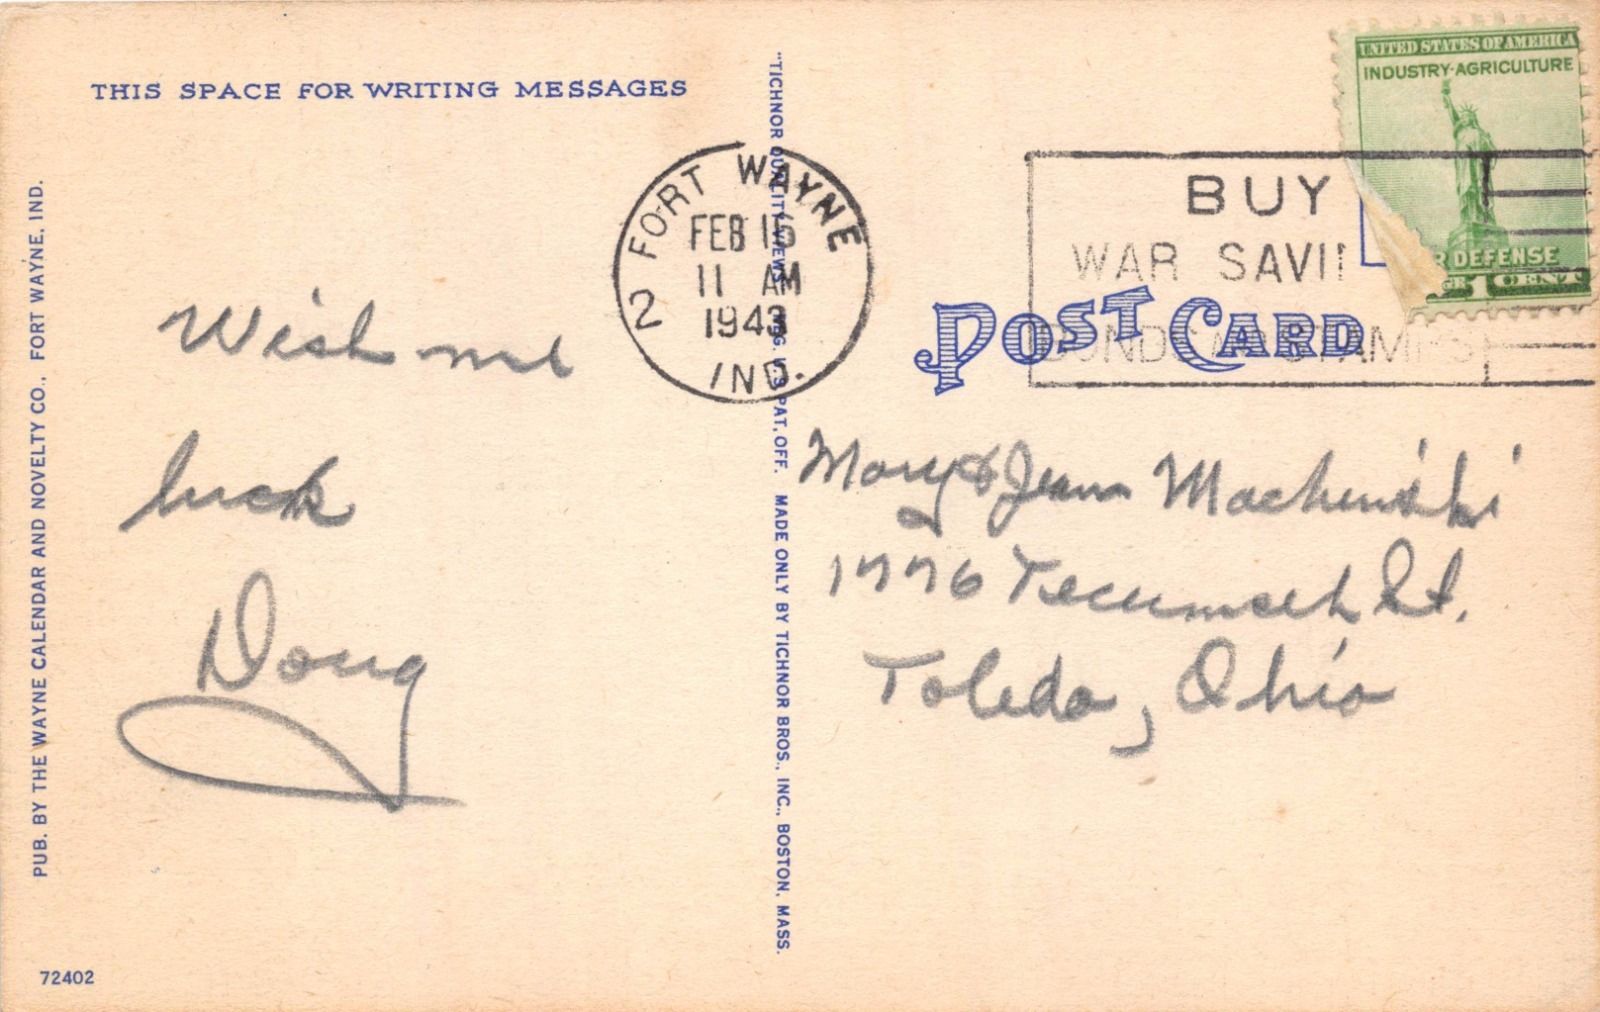 THIS SPACE FOR WRITING MESSAGES
Wish me
luck
Doug
PUB. BY THE WAYNE CALENDAR AND NOVELTY CO., FORT WAYNE, IND.
72402
"TICHNOR QUALITY VIEWS," REG. U. S. PAT. OFF. MADE ONLY BY TICHNOR BROS., INC., BOSTON, MASS.
FORT WAYNE
FEB 15
11 AM
1943
2 IND.
BUY
WAR SAVI
BONDS STAMPS
UNITED STATES OF AMERICA
INDUSTRY-AGRICULTURE
R DEFENSE
1 CENT
POST CARD
Mary & Jean
1776 Tecumseh St.
Toledo, Ohio